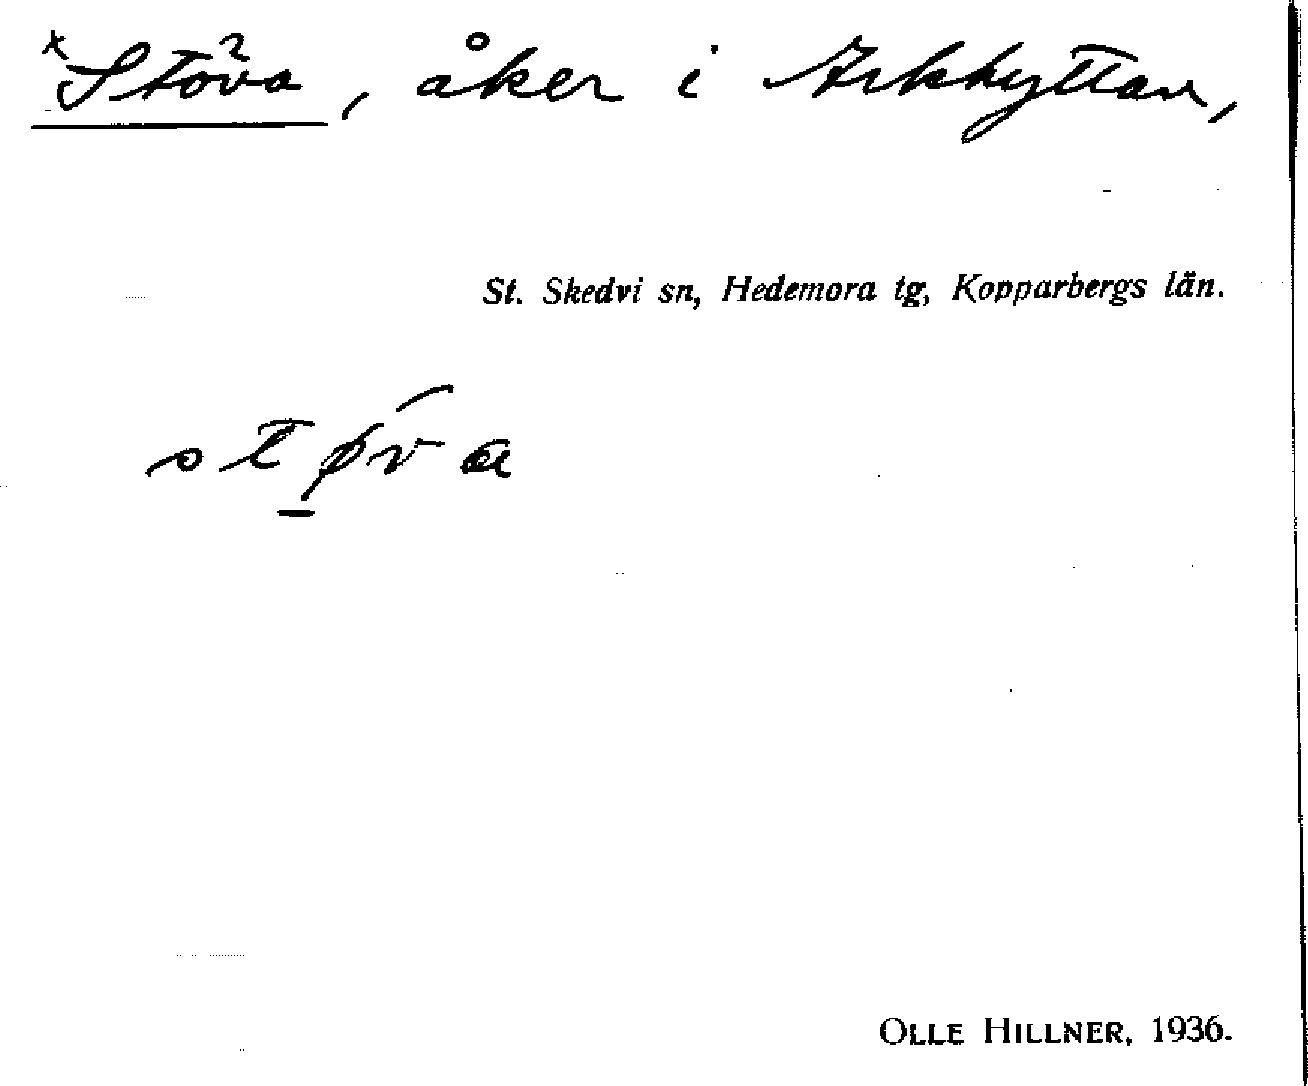 *Stöva, åker i Arkhyttan,
St. Skedvi sn, Hedemora tg, Kopparbergs län.
støva
OLLE HILLNER, 1936.